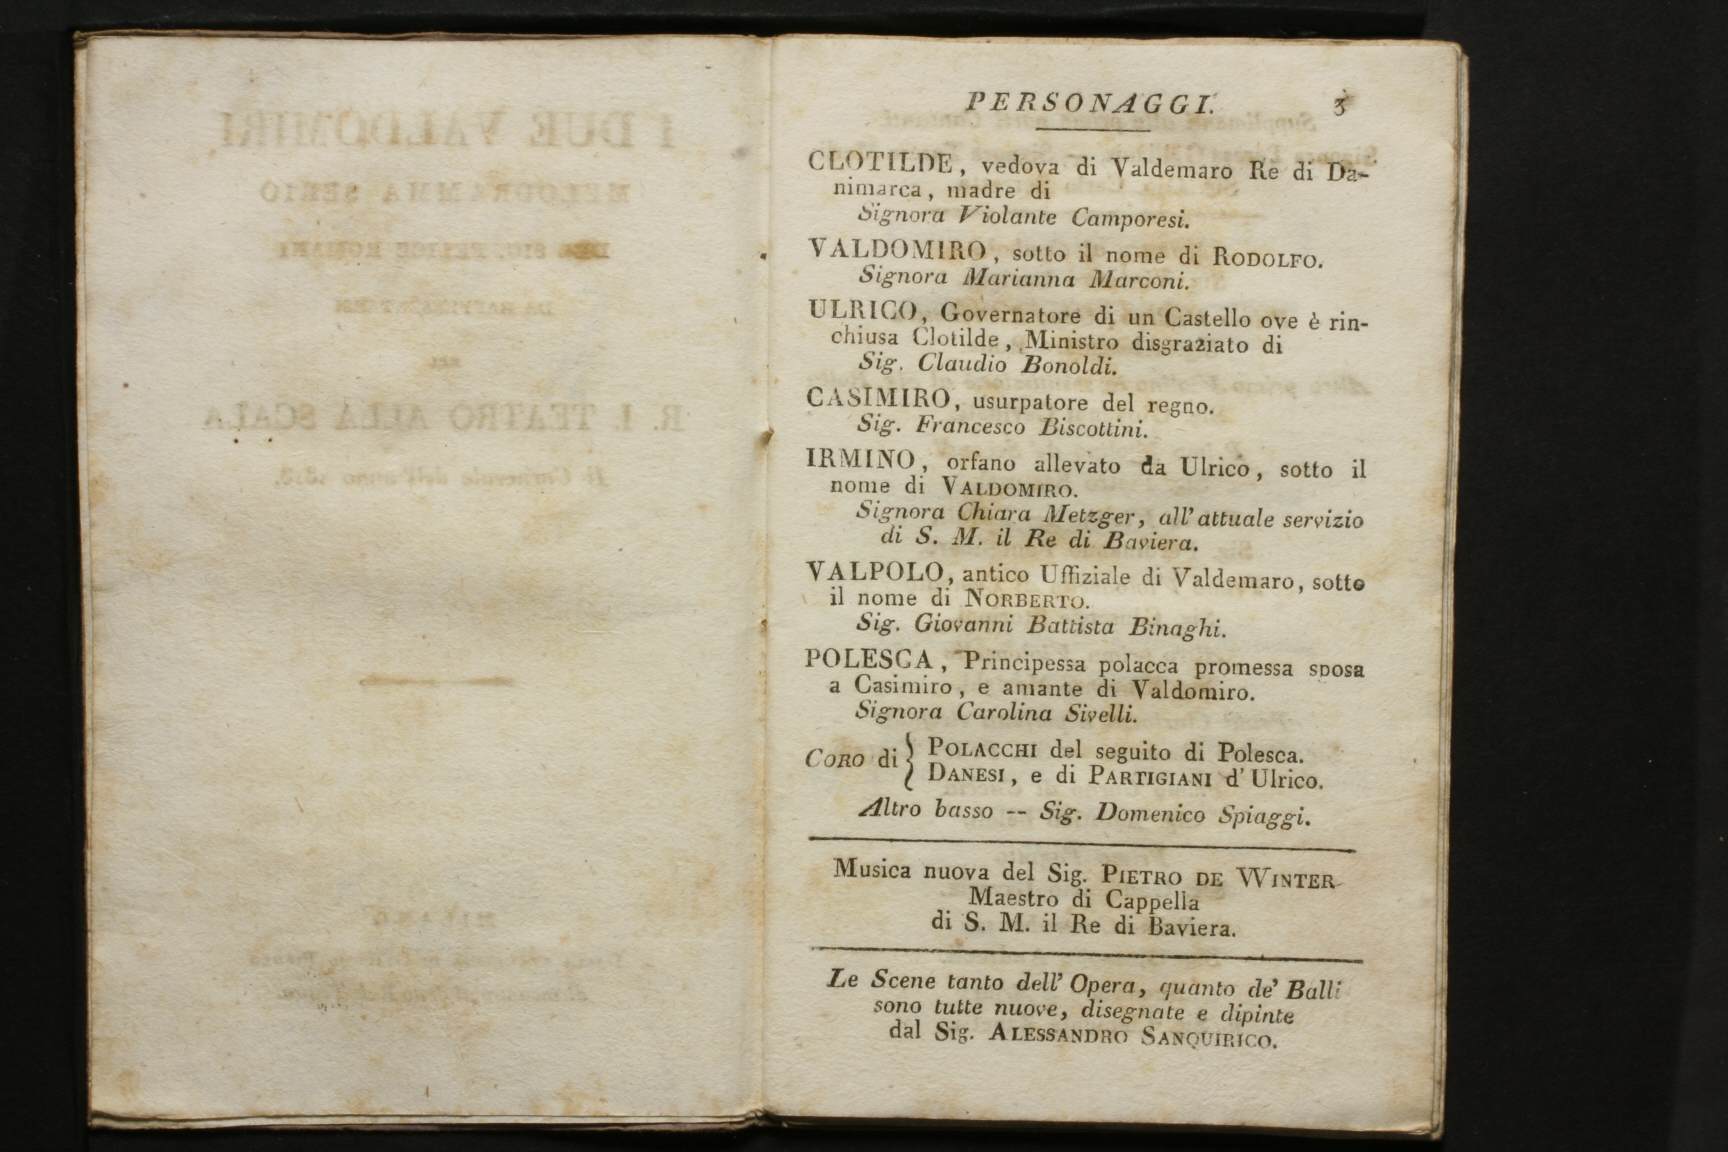 PERSONAGGI. 3
CLOTILDE, vedova di Valdemaro Re di Da-
nimarca, madre di
Signora Violante Camporesi.
VALDOMIRO, sotto il nome di RODOLFO.
Signora Marianna Marconi.
ULRICO, Governatore di un Castello ove è rin-
chiusa Clotilde, Ministro disgraziato di
Sig. Claudio Bonoldi.
CASIMIRO, usurpatore del regno.
Sig. Francesco Biscottini.
IRMINO, orfano allevato da Ulrico, sotto il
nome di VALDOMIRO.
Signora Chiara Metzger, all'attuale servizio
di S. M. il Re di Baviera.
VALPOLO, antico Uffiziale di Valdemaro, sotto
il nome di NORBERTO.
Sig. Giovanni Battista Binaghi.
POLESCA, Principessa polacca promessa sposa
a Casimiro, e amante di Valdomiro.
Signora Carolina Sivelli.
CORO di { POLACCHI del seguito di Polesca.
DANESI, e di PARTIGIANI d'Ulrico.
Altro basso -- Sig. Domenico Spiaggi.
Musica nuova del Sig. PIETRO DE WINTER
Maestro di Cappella
di S. M. il Re di Baviera.
Le Scene tanto dell'Opera, quanto de' Balli
sono tutte nuove, disegnate e dipinte
dal Sig. ALESSANDRO SANQUIRICO.